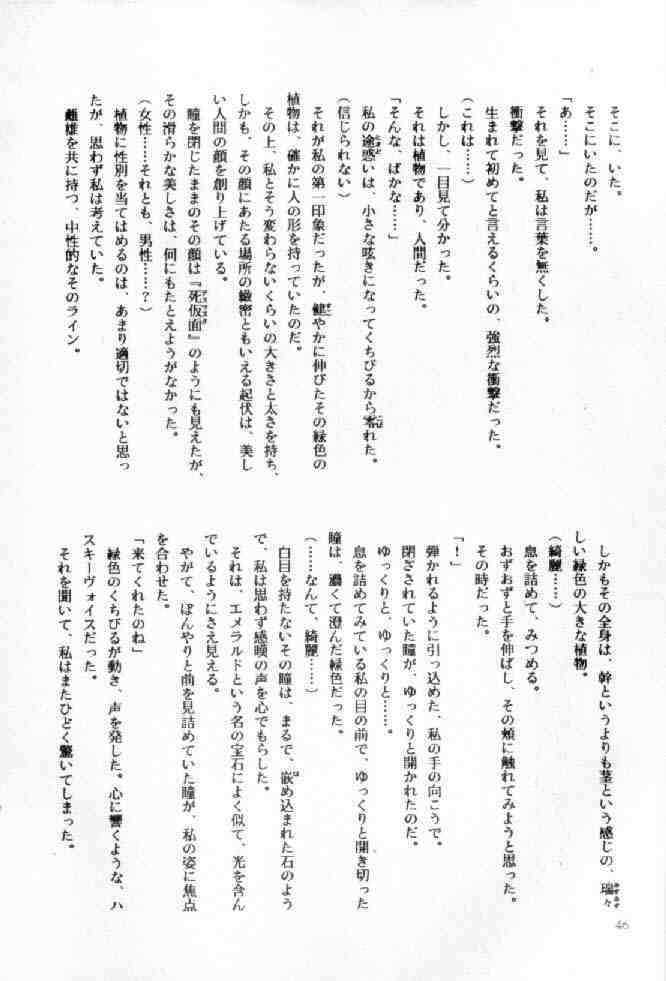 そこに、いた。
そこにいたのだが……。
「あ……」
それを見て、私は言葉を無くした。
衝撃だった。
生まれて初めてと言えるくらいの、強烈な衝撃だった。
(これは……)
しかし、一目見て分かった。
それは植物であり、人間だった。
「そんな、ばかな……」
私の途惑いは、小さな呟きになってくちびるから零れた。
(信じられない)
それが私の第一印象だったが、健やかに伸びたその緑色の
植物は、確かに人の形を持っていたのだ。
その上、私とそう変わらないくらいの大きさと太さを持ち、
しかも、その顔にあたる場所の緻密ともいえる起伏は、美し
い人間の顔を創り上げている。
瞳を閉じたままのその顔は『死仮面』のようにも見えたが、
その滑らかな美しさは、何にもたとえようがなかった。
(女性……それとも、男性……?)
植物に性別を当てはめるのは、あまり適切ではないと思っ
たが、思わず私は考えていた。
雌雄を共に持つ、中性的なそのライン。
しかもその全身は、幹というよりも茎という感じの、瑞々
しい緑色の大きな植物。
(綺麗……)
息を詰めて、みつめる。
おずおずと手を伸ばし、その頬に触れてみようと思った。
その時だった。
「!」
弾かれるように引っ込めた、私の手の向こうで。
閉ざされていた瞳が、ゆっくりと開かれたのだ。
ゆっくりと、ゆっくりと……。
息を詰めてみている私の目の前で、ゆっくりと開き切った
瞳は、濃くて澄んだ緑色だった。
(……なんて、綺麗……)
白目を持たないその瞳は、まるで、嵌め込まれた石のよう
で、私は思わず感嘆の声を心でもらした。
それは、エメラルドという名の宝石によく似て、光を含ん
でいるようにさえ見える。
やがて、ぼんやりと前を見詰めていた瞳が、私の姿に焦点
を合わせた。
「来てくれたのね」
緑色のくちびるが動き、声を発した。心に響くような、ハ
スキーヴォイスだった。
それを聞いて、私はまたひどく驚いてしまった。
46